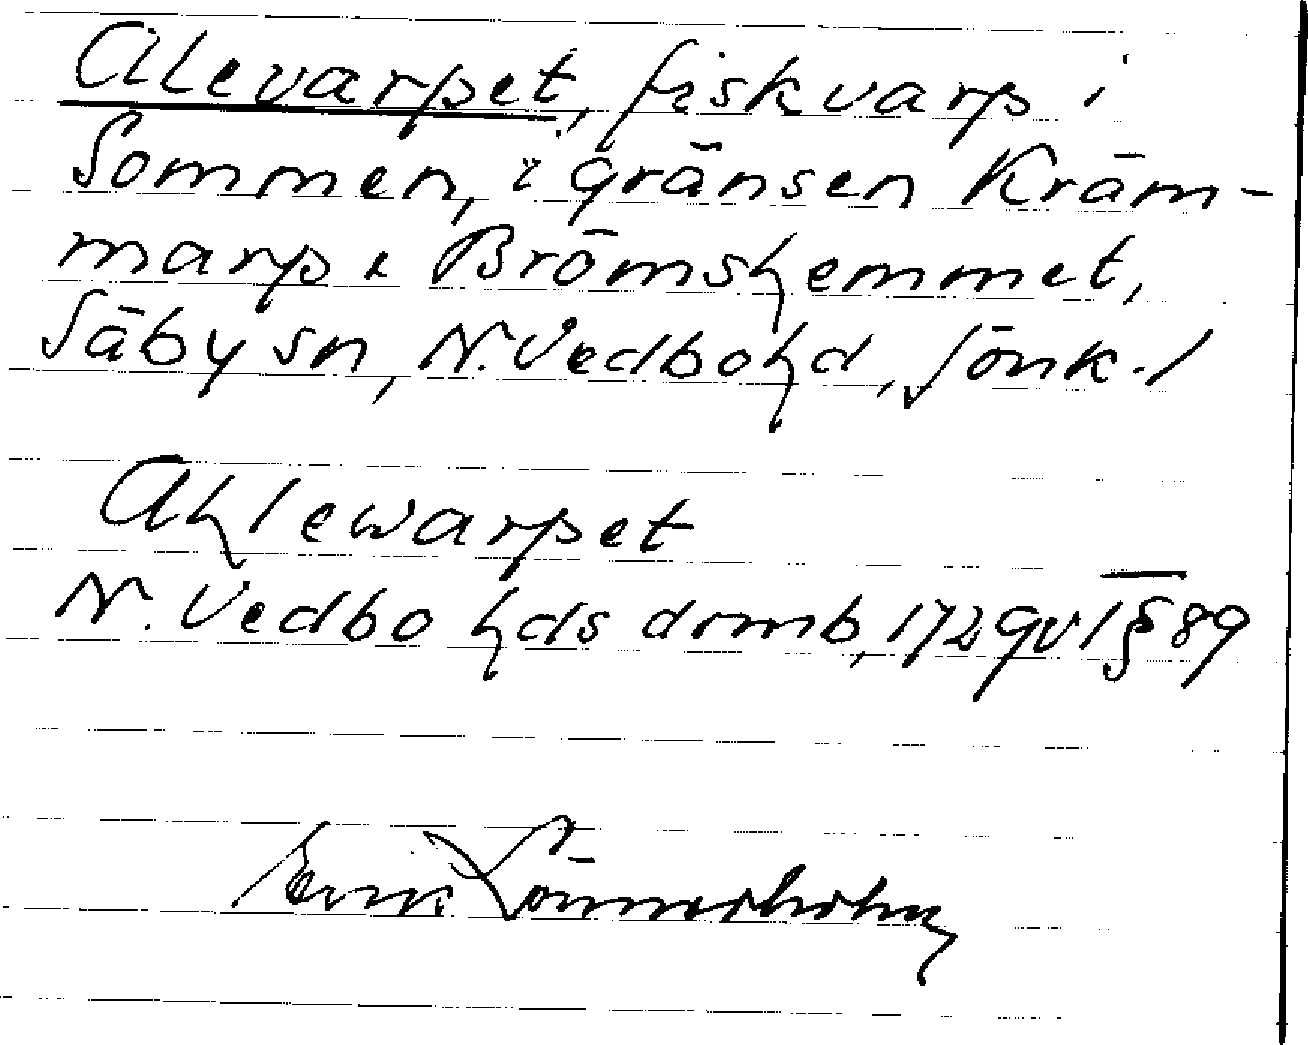 Alevarpet, fiskvarp i
Sommen, i gränsen Kräm-
marp & Brömshemmet,
Säby sn, N. Vedbo hd, Jönk. l
Ahlewarpet
N. Vedbo hds domb, 1729 vt § 89
Lönnerholm